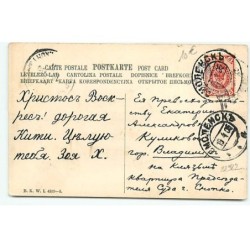 CARTE POSTALE POSTKARTE POST CARD
LEVELEZŐ-LAP CARTOLINA POSTALE DOPISNICE BREFKORT
BRIEFKAART KARTA KORESPONDENCYJNA ОТКРЫТОЕ ПИСЬМО
Христосъ Вос-
кресъ! дорогая
Кити. Цѣлую
тебя. Зоя Х.
Ея Превосходительству
Екатеринѣ
Александровнѣ
Куликовой
гор. Владиміръ
на Клязьмѣ
квартира Предсѣда-
теля Суда г.
СМОЛЕНСКЪ
СМОЛЕНСКЪ